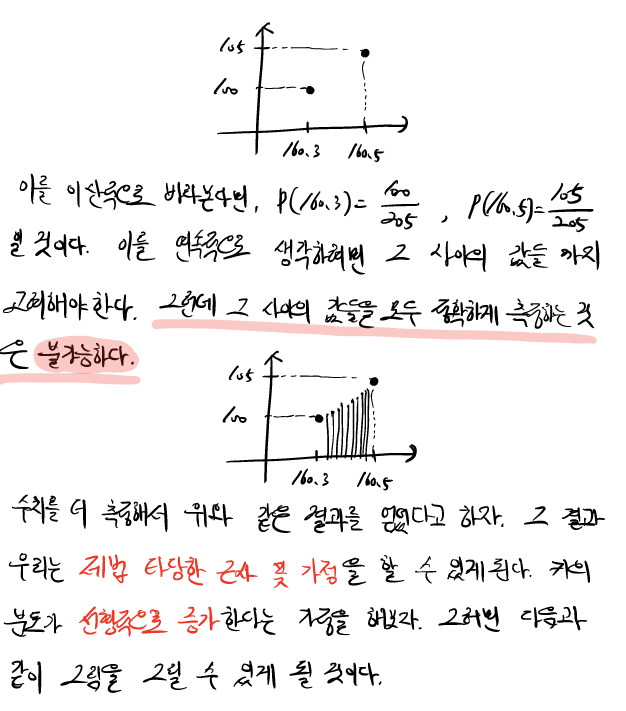 105
100
160.3 160.5
이를 이산적으로 바라본다면, P(160.3)= 100/205 , P(160.5)= 105/205
일 것이다. 이를 연속적으로 생각하려면 그 사이의 값들 까지
고려해야 한다. 그런데 그 사이의 값들을 모두 정확하게 측정하는 것
은 불가능하다.
105
100
160.3 160.5
수치를 더 측정해서 위와 같은 결과를 얻었다고 하자. 그 결과
우리는 제법 타당한 근사 및 가정을 할 수 있게 된다. 키의
분포가 선형적으로 증가한다는 가정을 해보자. 그러면 다음과
같이 그림을 그릴 수 있게 될 것이다.